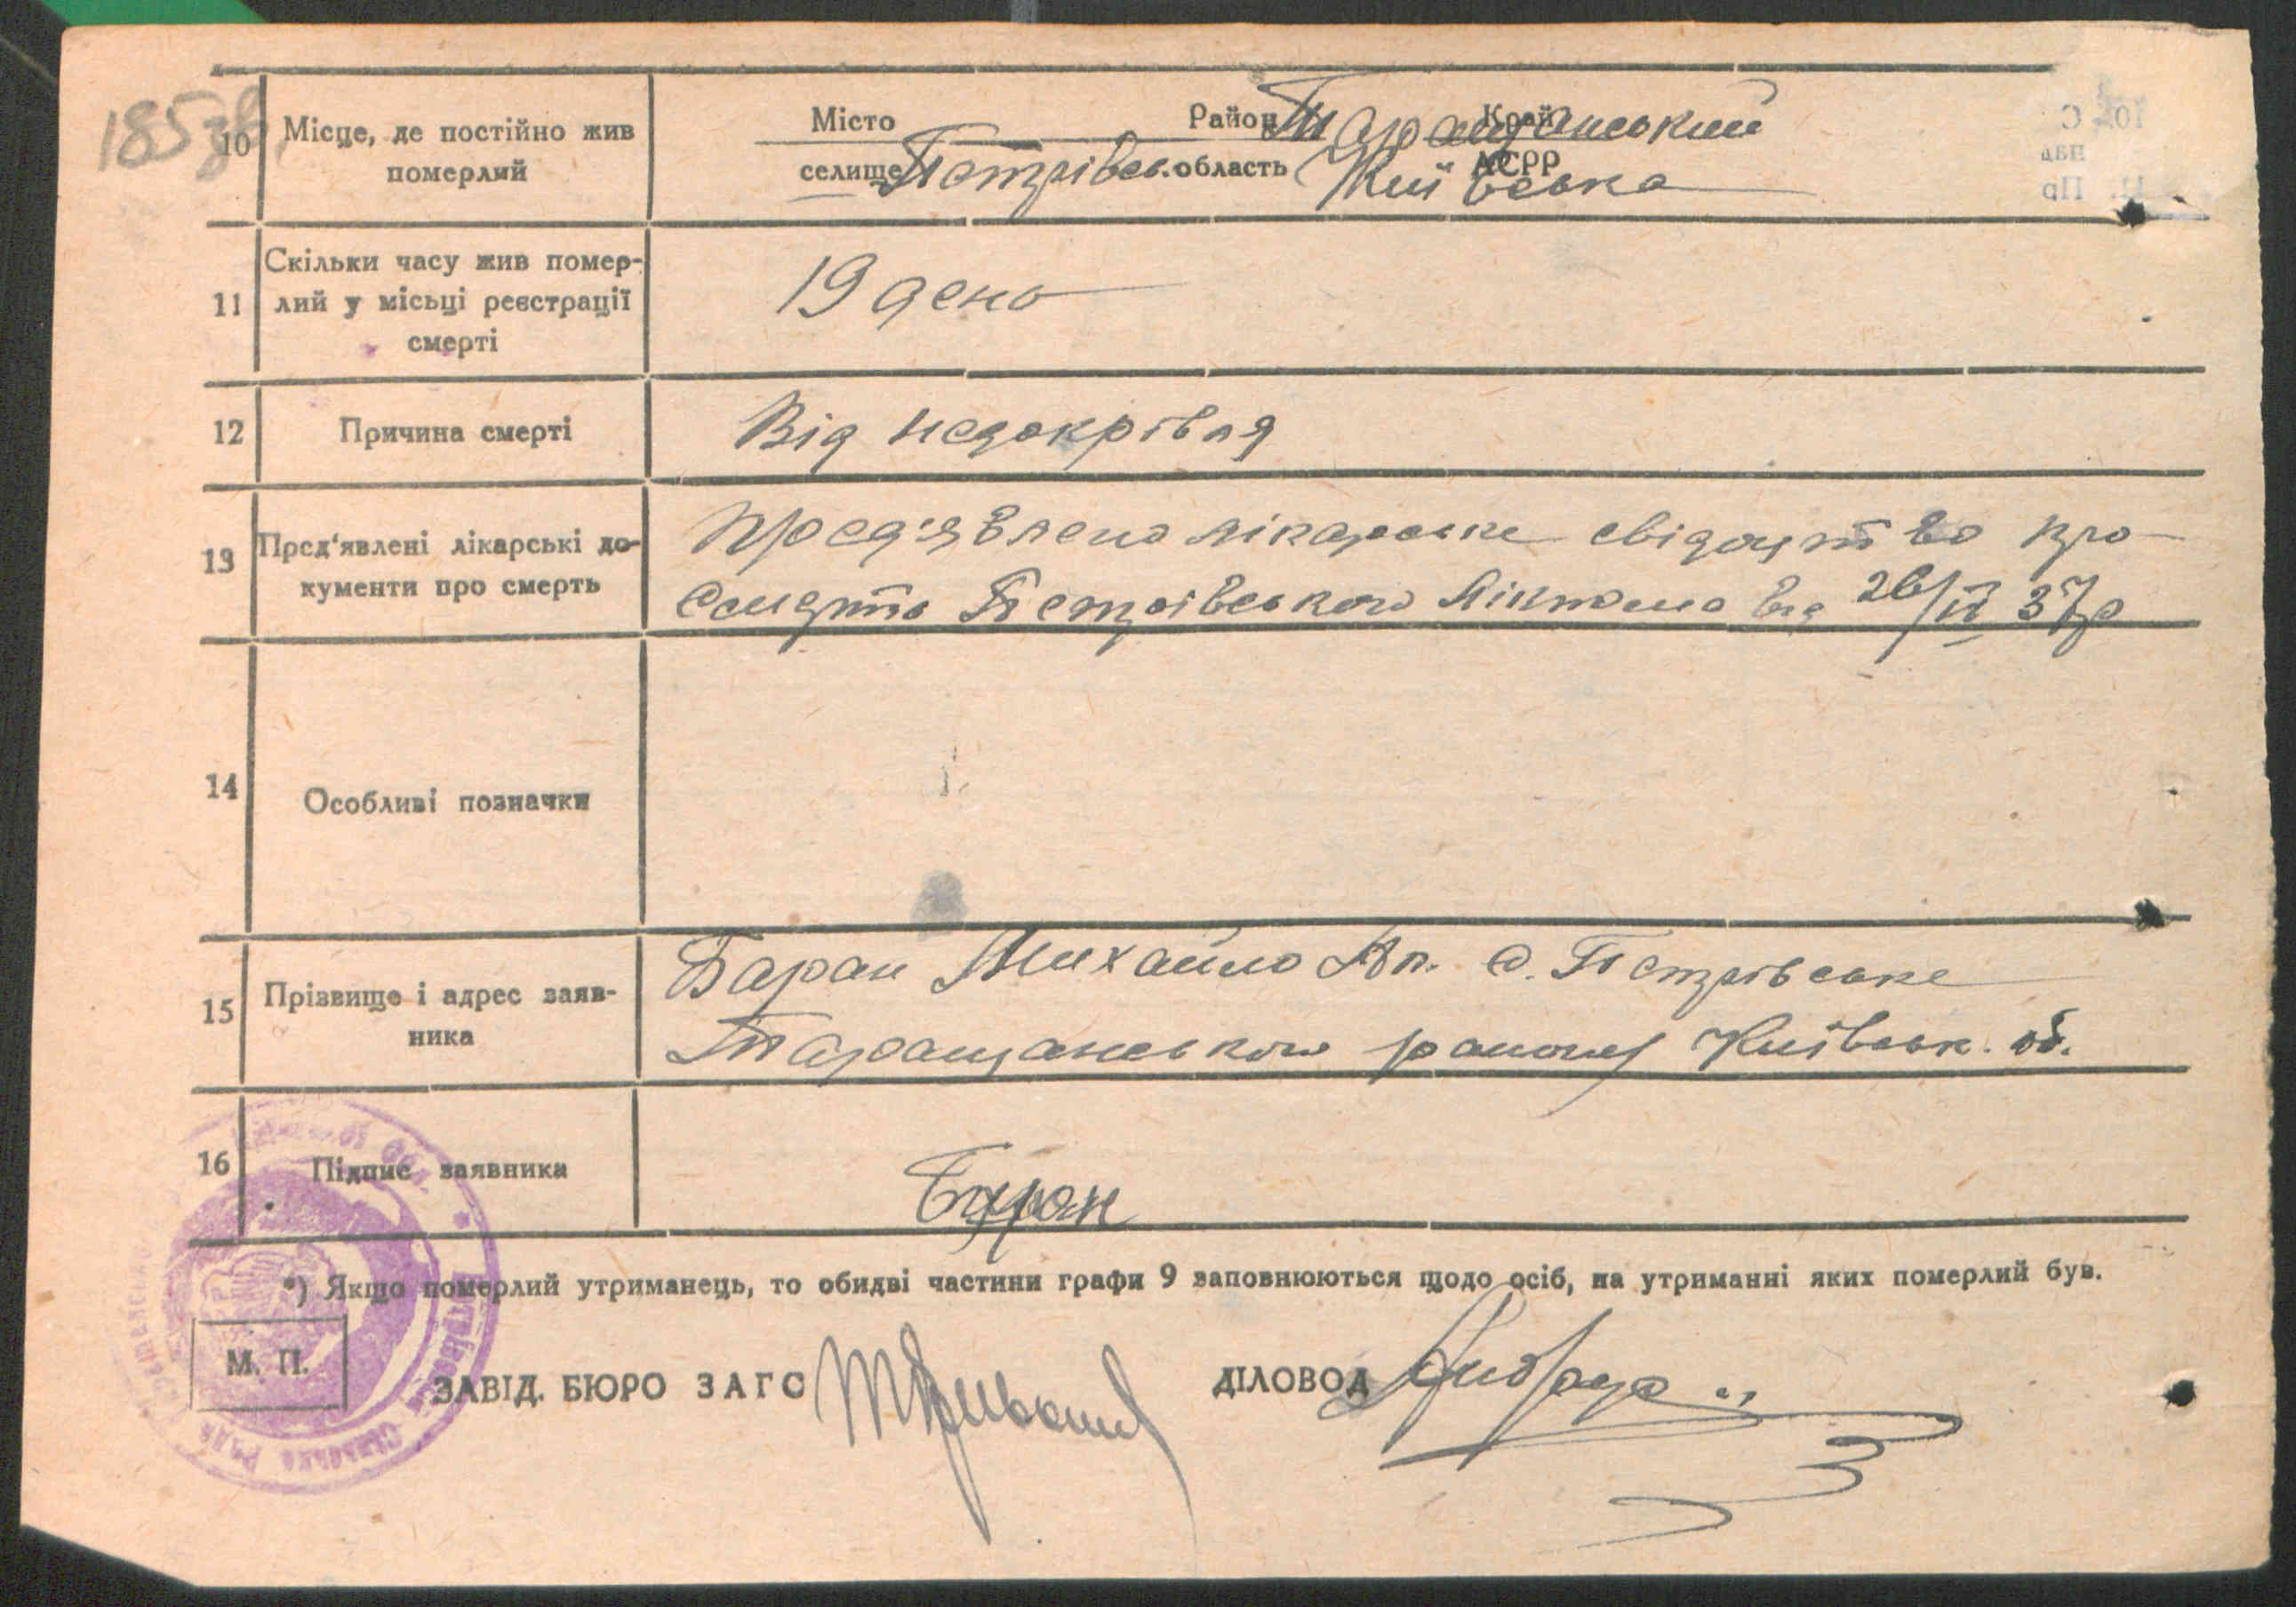 185зв
10 Місце, де постійно жив померлий
Місто Район Таращанський Край
селище Петрівсь. область Київська АСРР
11 Скільки часу жив помер-
лий у місьці реєстрації
смерті
19 день
12 Причина смерті
Від недокрівля
13 Пред'явлені лікарські до-
кументи про смерть
Пред'явлено лікарське свідоцтво про
смерть Петрівського від 26/II 37р
14 Особливі позначки
15 Прізвище і адрес заяв-
ника
Баран Михайло Ап. с. Петрівське
Таращанського району Київськ. об.
16 Підпис заявника
Баран
*) Якщо померлий утриманець, то обидві частини графи 9 заповнюються щодо осіб, на утриманні яких померлий був.
М. П.
ЗАВІД. БЮРО ЗАГС
ДІЛОВОД